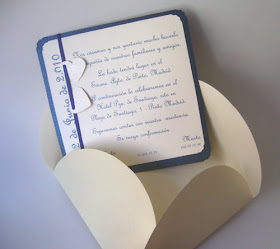 2 de Junio de 2.010
Nos casamos y nos gustaría mucho hacerlo
de nuestros familiares y amigos.
La boda tendrá lugar en el
Excmo. Ayto. de Parla, Madrid.
A continuación lo celebraremos en el
Hotel Pza. de Santiago, sito en
Plaza de Santiago, 1. Parla, Madrid.
Esperamos contar con vuestra asistencia.
Se ruega confirmación.
Marta